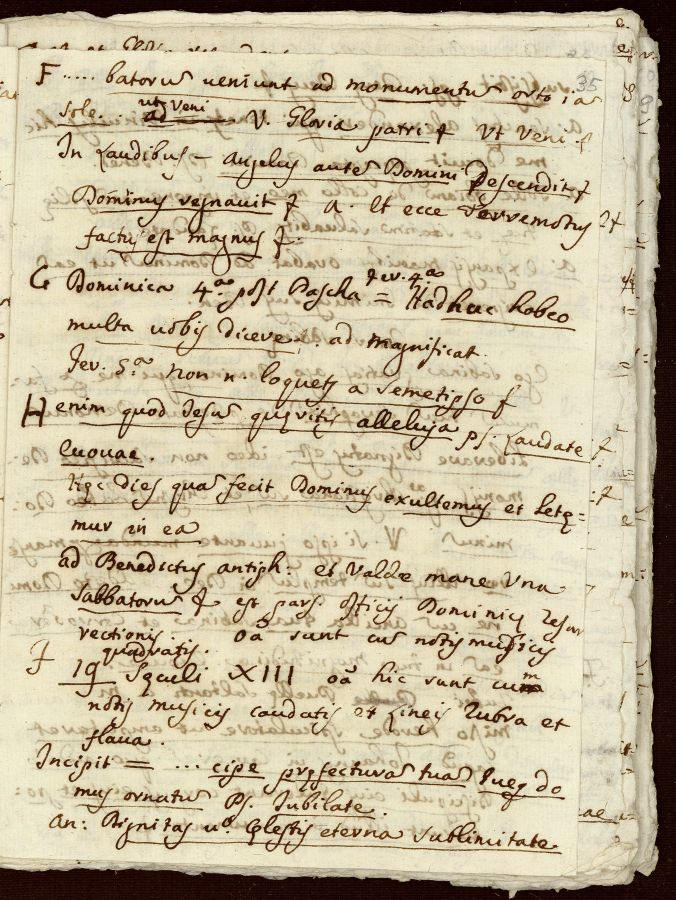 35
F ..... batorum veniunt ad monumentum orto iam
sole. .. ut veni ad V. Gloria patri Ut veni
In Laudibus - Angelus autem Domini Descendit
Dominus regnavit a. Et ecce Terremotus
factus est magnus
G Dominica 4.a post Pascha = fer. 4.a adhuc habeo
multa vobis dicere .. ad magnificat.
fer. 5.a non n loquetur a semetipso
H enim quod Jesum quęritis alleluja Ps. Laudate
Euouae.
Hęc Dies quam fecit Dominus exultemus et letę=
mur in ea
ad Benedictus antiph: et valde mane una
Sabbatorum est pars officij Dominicę resur
rectionis. oã sunt cum notis musicis
quadratis.
I 19 Sęculi XIII oã hic sunt cum
notis musicis caudatis et Lineis Rubra et
flava.
Incipit = ... cipe pręfecturam tuam tuęq domus
mus ornatum Ps. Jubilate.
an: Dignitas v.o cęlestis eterna sublimitate
ae